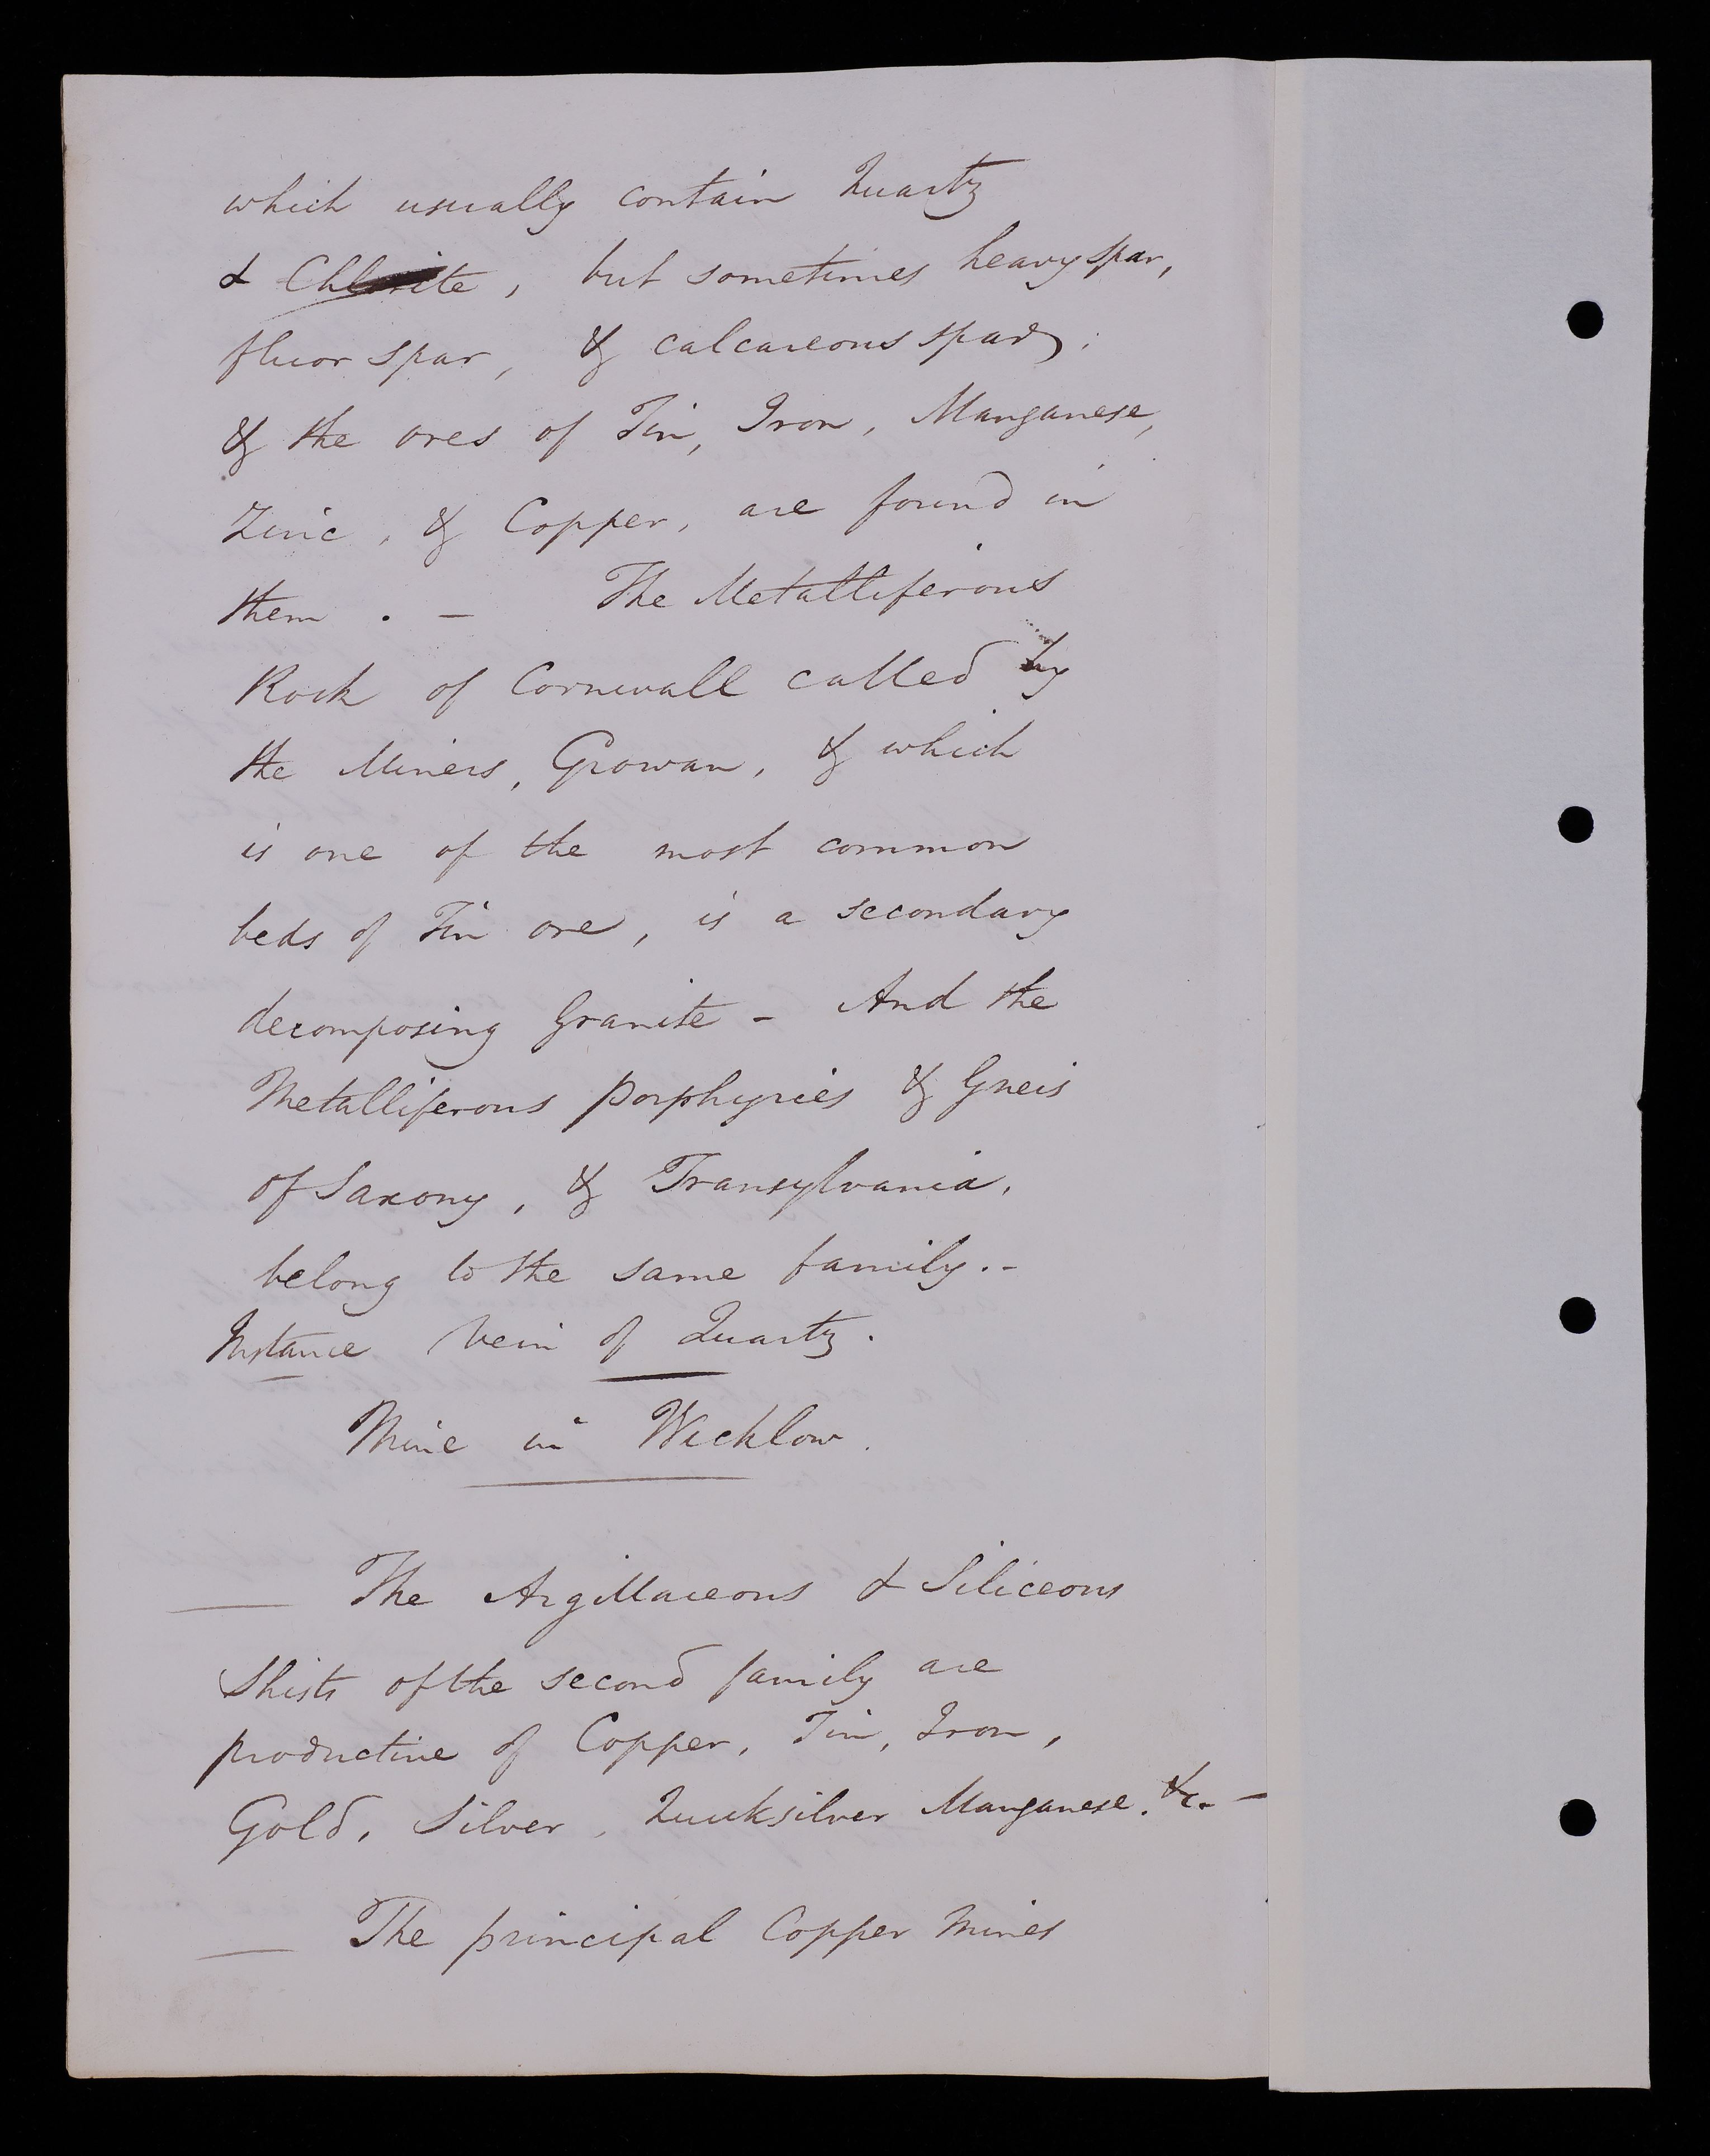 which usually contain Quartz
& Chlorite, but sometimes heavy spar,
fluor spar, & calcareous spar;
& the ores of Tin, Iron, Manganese,
Zinc, & Copper, are found in
them. — The Metalliferous
Rock of Cornwall called by
the Miners, Growan, & which
is one of the most common
beds of Tin ore, is a secondary
decomposing Granite - And the
Metalliferous porphyries & Gneis
of Saxony, & Transylvania,
belong to the same family.-
Instance Vein of Quartz.
Mine in Wicklow.
— The Argillaceous & Siliceous
Shists of the second family are
productive of Copper, Tin, Iron,
Gold, Silver, Quicksilver Manganese. &c. —
— The principal Copper Mines